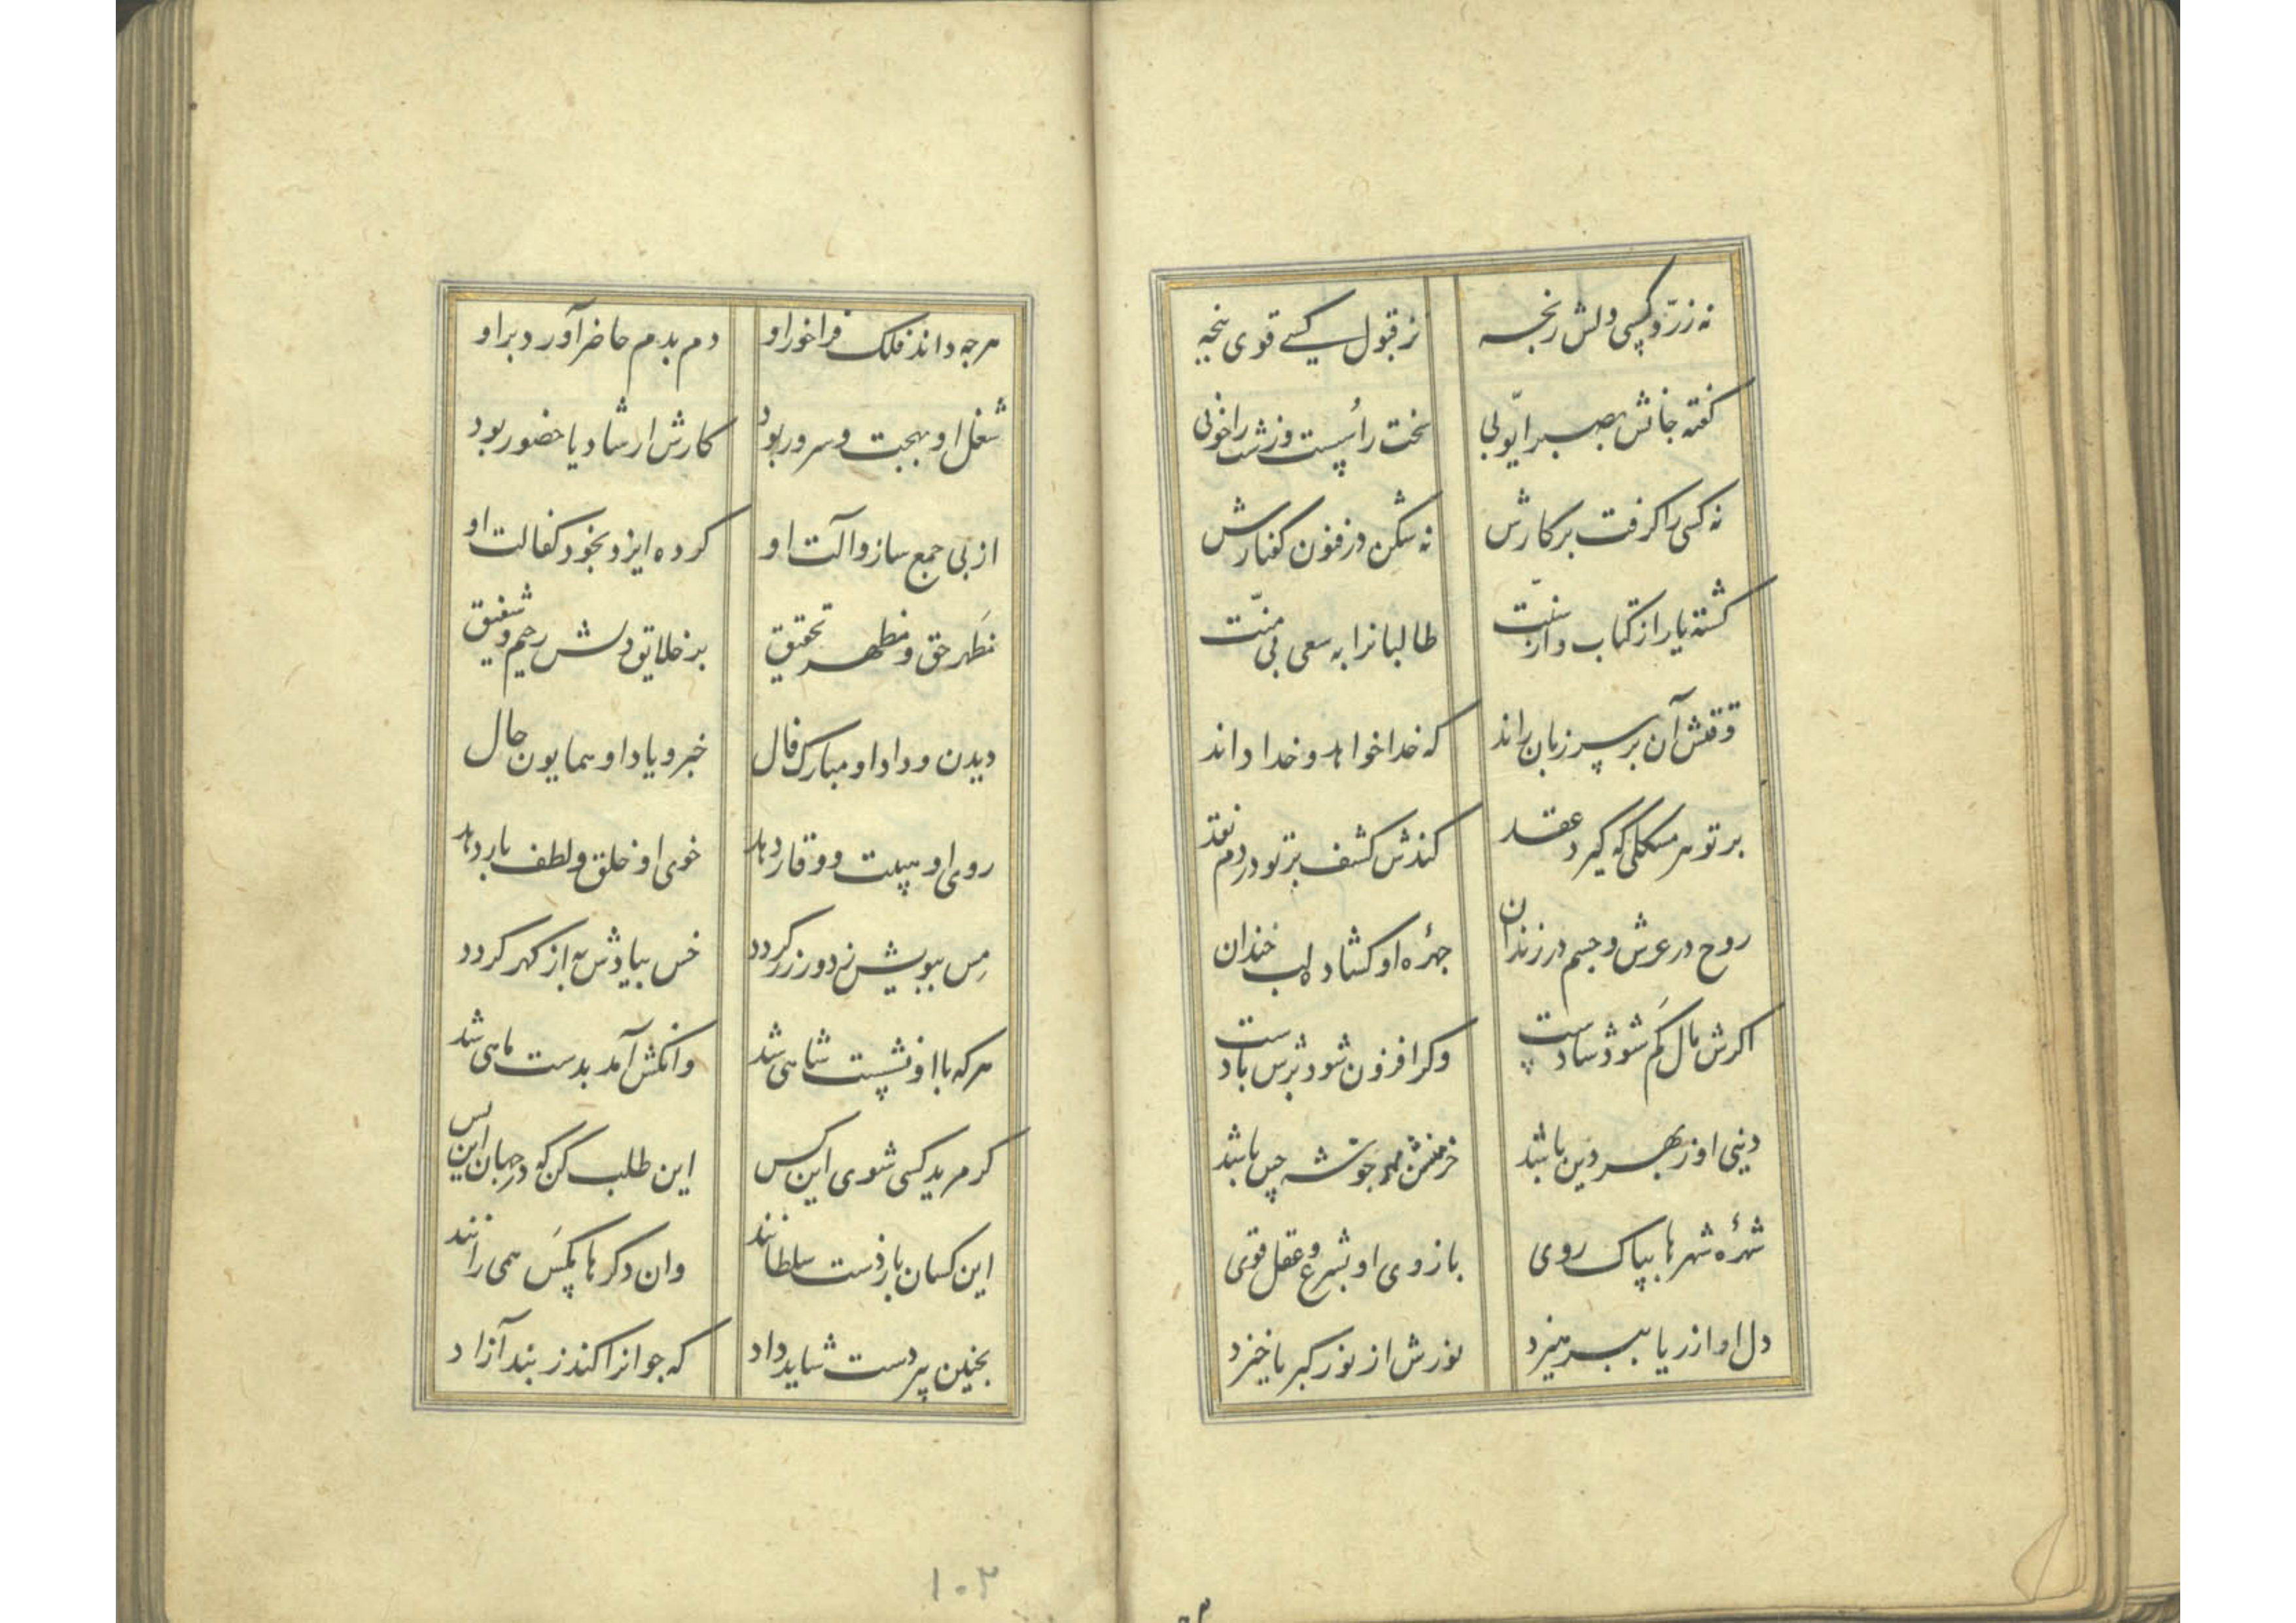 نه ز رد و کسی دلش رنجه    نز قبول کسی قوی پنجه
گفته جانش بصبر ایوبی    سخت را سست و زشت را خوبی
نه کسی را گرفت بر کارش    نه شکن در فنون گفتارش
گشته یار از کتاب و از سنت    طالبانرا به سعی بی منت
وقتش آن بر سر زبان راند    که خدا خواهد و خدا داند
بر تو هر مشکلی که گیرد عقد    کندش کشف بر تو در دم نقد
روح در عرش و جسم در زندان    چهرهٔ او گشاده لب خندان
اگرش مال کم شود شادست    وگر افزون شود برش بادست
دنیی او ز بهر دین باشد    خرمنش خوشه چین باشد
شهرهٔ شهرها بپاک روی    بازوی او بشرع و عقل قوی
دل او از ریا بپرهیزد    نورش از نور کبریا خیزد
هرچه داند فلک فراخور او    دم بدم حاضر آورد بر او
شغل او بهجت و سرور بود    کارش ارشاد یا حضور بود
از پی جمع ساز و آلت او    کرده ایزد بخود کفالت او
مظهر حق و مظهر تحقیق    بر خلایق دلش رحیم و شفیق
دیدن و داد او مبارک فال    خبر و یاد او همایون حال
روی او هیبت و وقار دهد    خوی او خلق و لطف بار دهد
مس ببویش نه دور زر گردد    خس بیادش به از گهر گردد
هر که با او نشست شاهی شد    وانکش آمد بدست ماهی شد
گر مرید کسی شوی این کس    این طلب کن که در جهان این بس
این کسان باز دست سلطانند    وان دگرها مگس همی رانند
بچنین پیر دست شاید داد    که جوانرا کند ز بند آزاد
۱۰۲